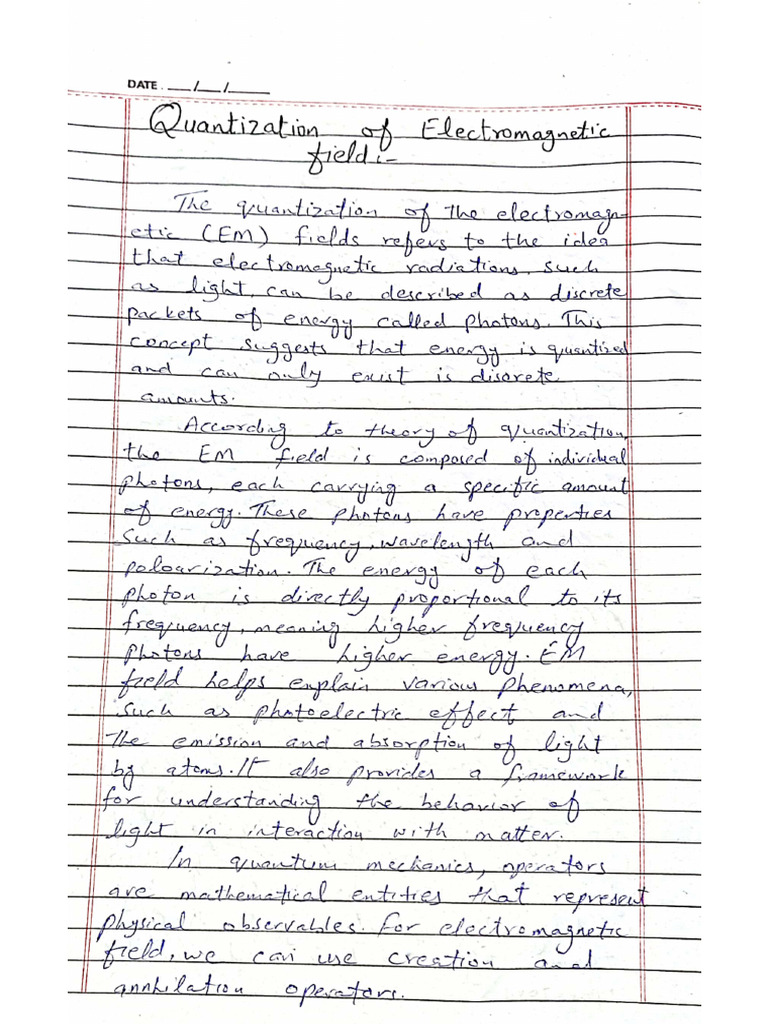 DATE. __/__/____
Quantization of Electromagnetic
field:-
The quantization of the electromagn-
etic (EM) fields refers to the idea
that electromagnetic radiations, such
as light, can be described as discrete
packets of energy called photons. This
concept suggests that energy is quantized
and can only exist is discrete
amounts.
According to theory of quantization,
the EM field is composed of individual
photons, each carrying a specific amount
of energy. These photons have properties
such as frequency, wavelength and
poloarization. The energy of each
photon is directly proportional to its
frequency, meaning higher frequency
photons have higher energy. EM
field helps explain various phenomena,
such as photoelectric effect and
the emission and absorption of light
by atoms. It also provides a framework
for understanding the behavior of
light in interaction with matter.
In quantum mechanics, operators
are mathematical entities that represent
physical observables. For electromagnetic
field, we can use creation and
annhilation operators.